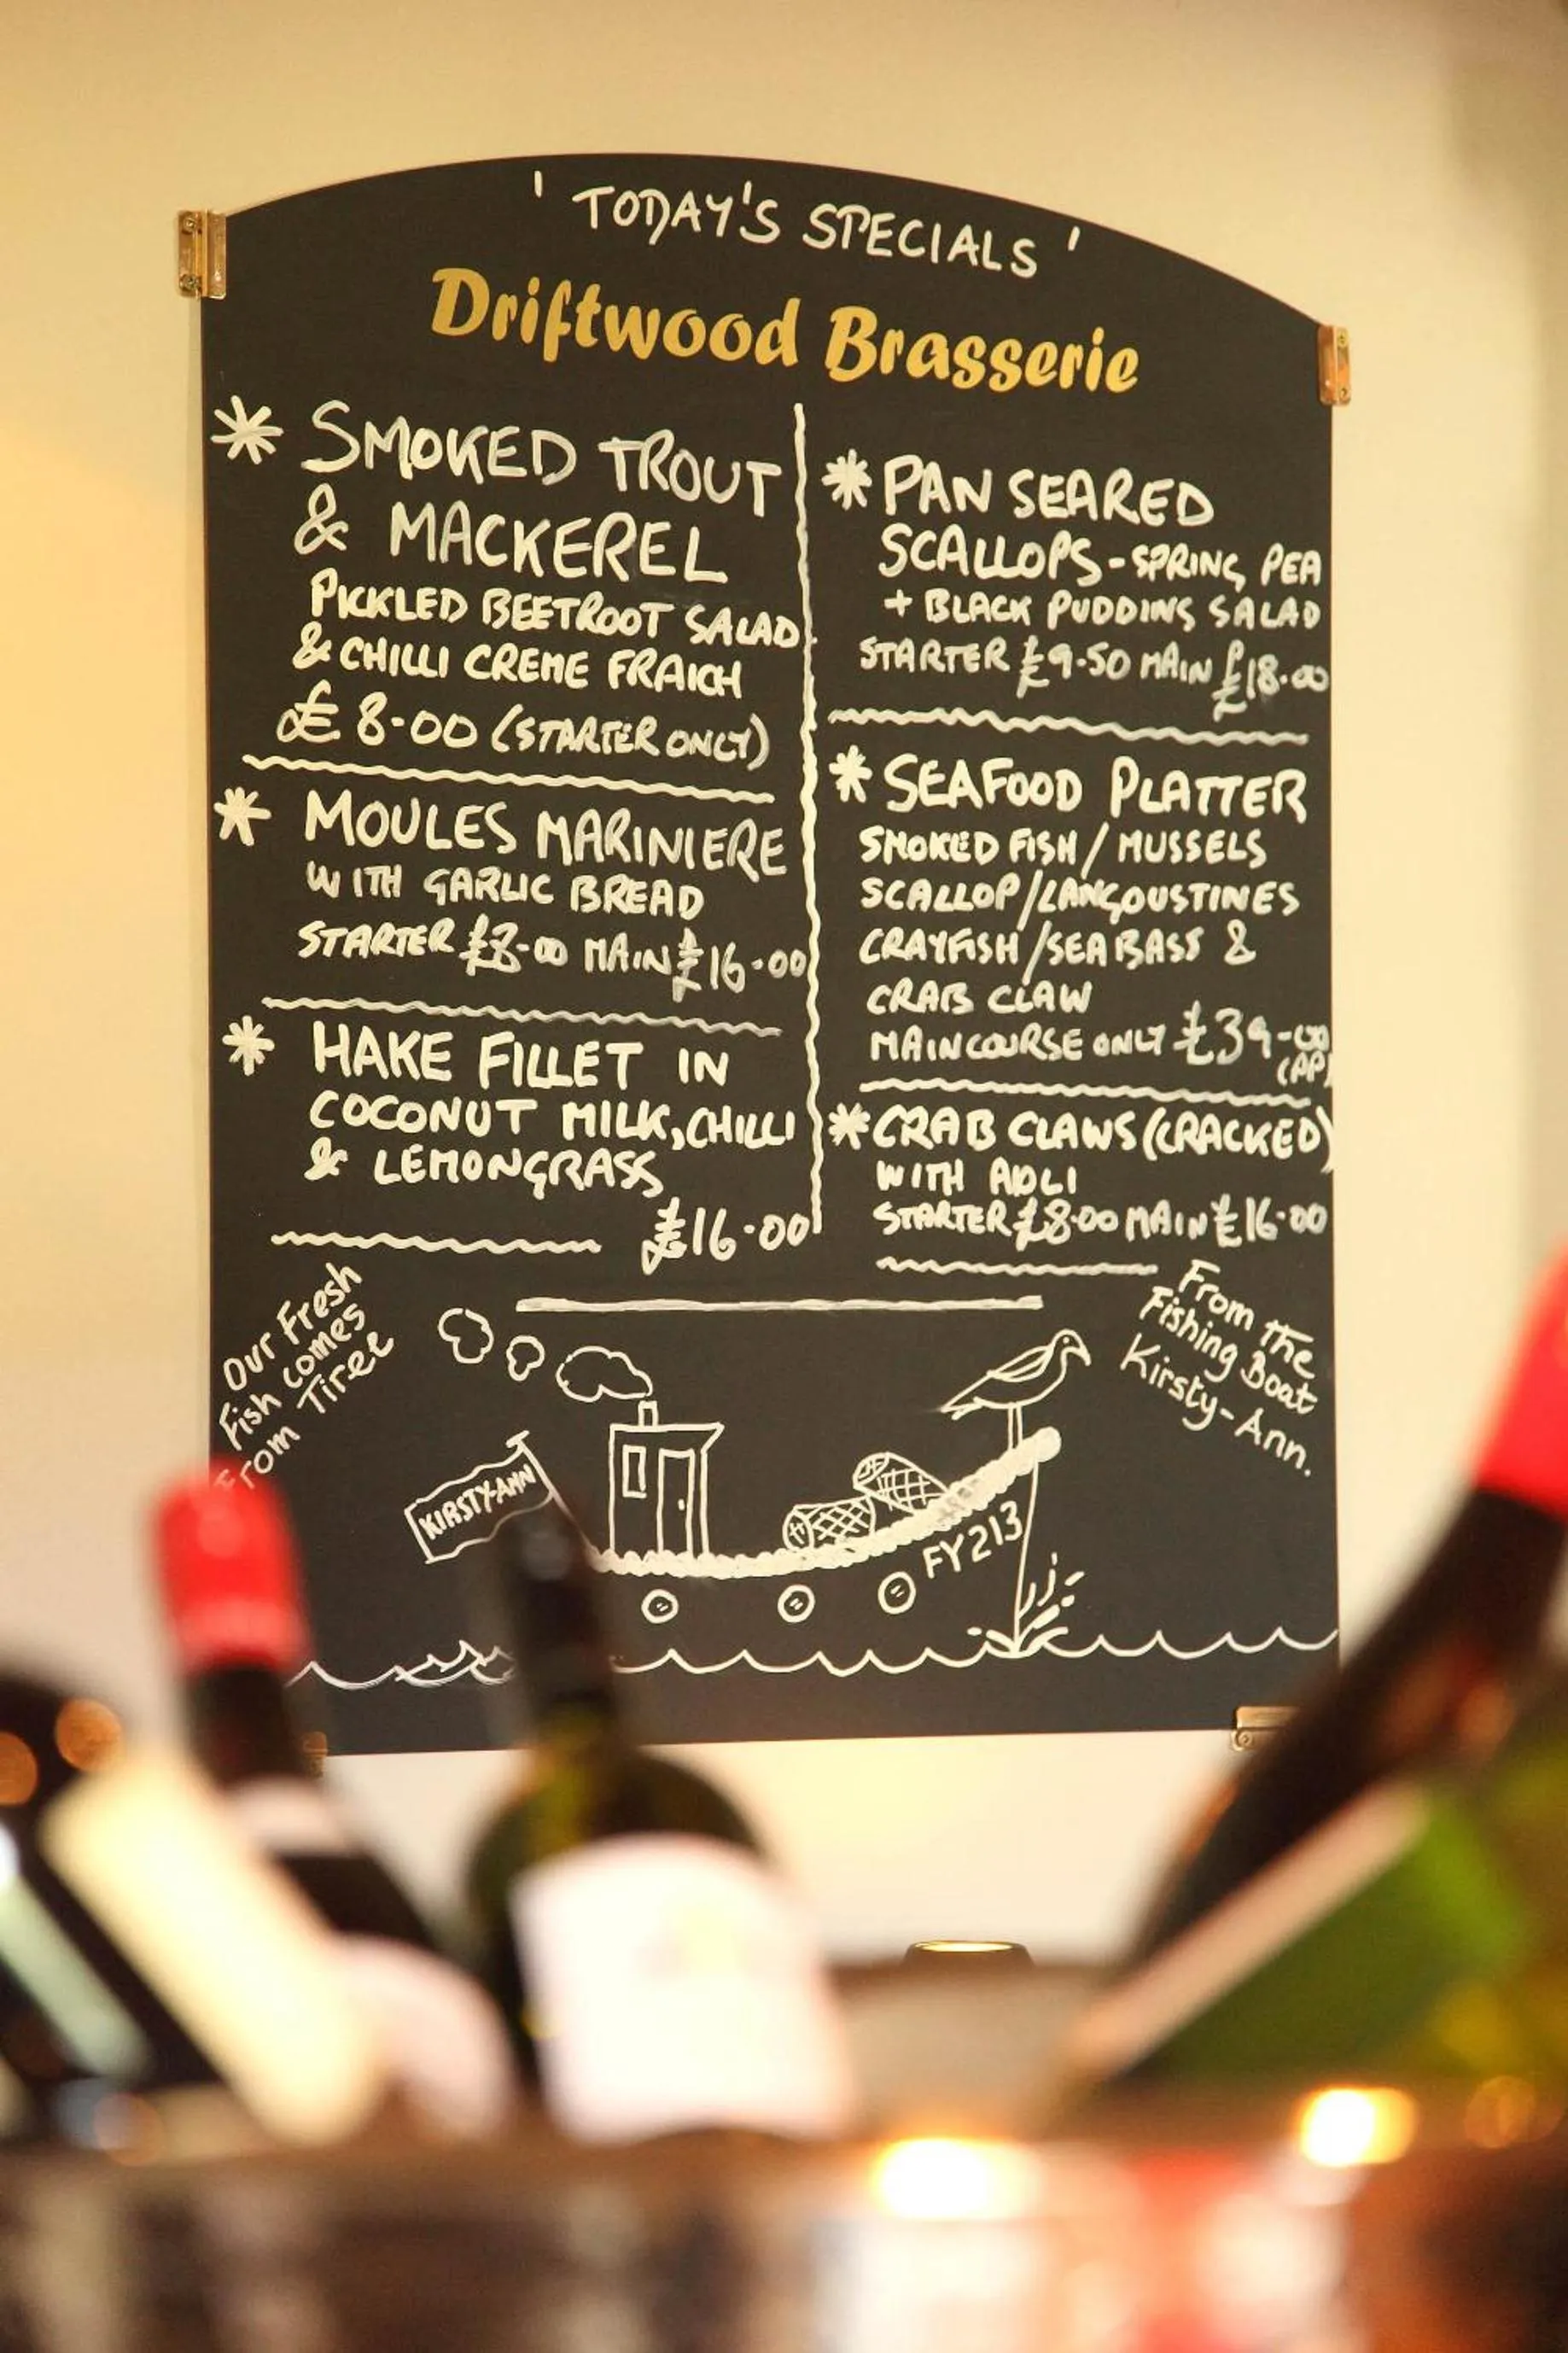 ' TODAY'S SPECIALS '
Driftwood Brasserie
* SMOKED TROUT
& MACKEREL
PICKLED BEETROOT SALAD
& CHILLI CREME FRAICH
£ 8-00 (STARTER ONLY)
* MOULES MARINIERE
WITH GARLIC BREAD
STARTER £8-00 MAIN £16-00
* HAKE FILLET IN
COCONUT MILK, CHILLI
& LEMONGRASS
£16-00
* PAN SEARED
SCALLOPS - SPRING PEA
+ BLACK PUDDING SALAD
STARTER £9-50 MAIN £18-00
* SEAFOOD PLATTER
SMOKED FISH / MUSSELS
SCALLOP / LANGOUSTINES
CRAYFISH / SEA BASS &
CRAB CLAW
MAIN COURSE ONLY £39-00
(PP)
* CRAB CLAWS (CRACKED)
WITH AOLI
STARTER £8-00 MAIN £16-00
Our Fresh
Fish comes
From Tiree
From the
Fishing Boat
Kirsty-Ann.
KIRSTY-ANN
FY213